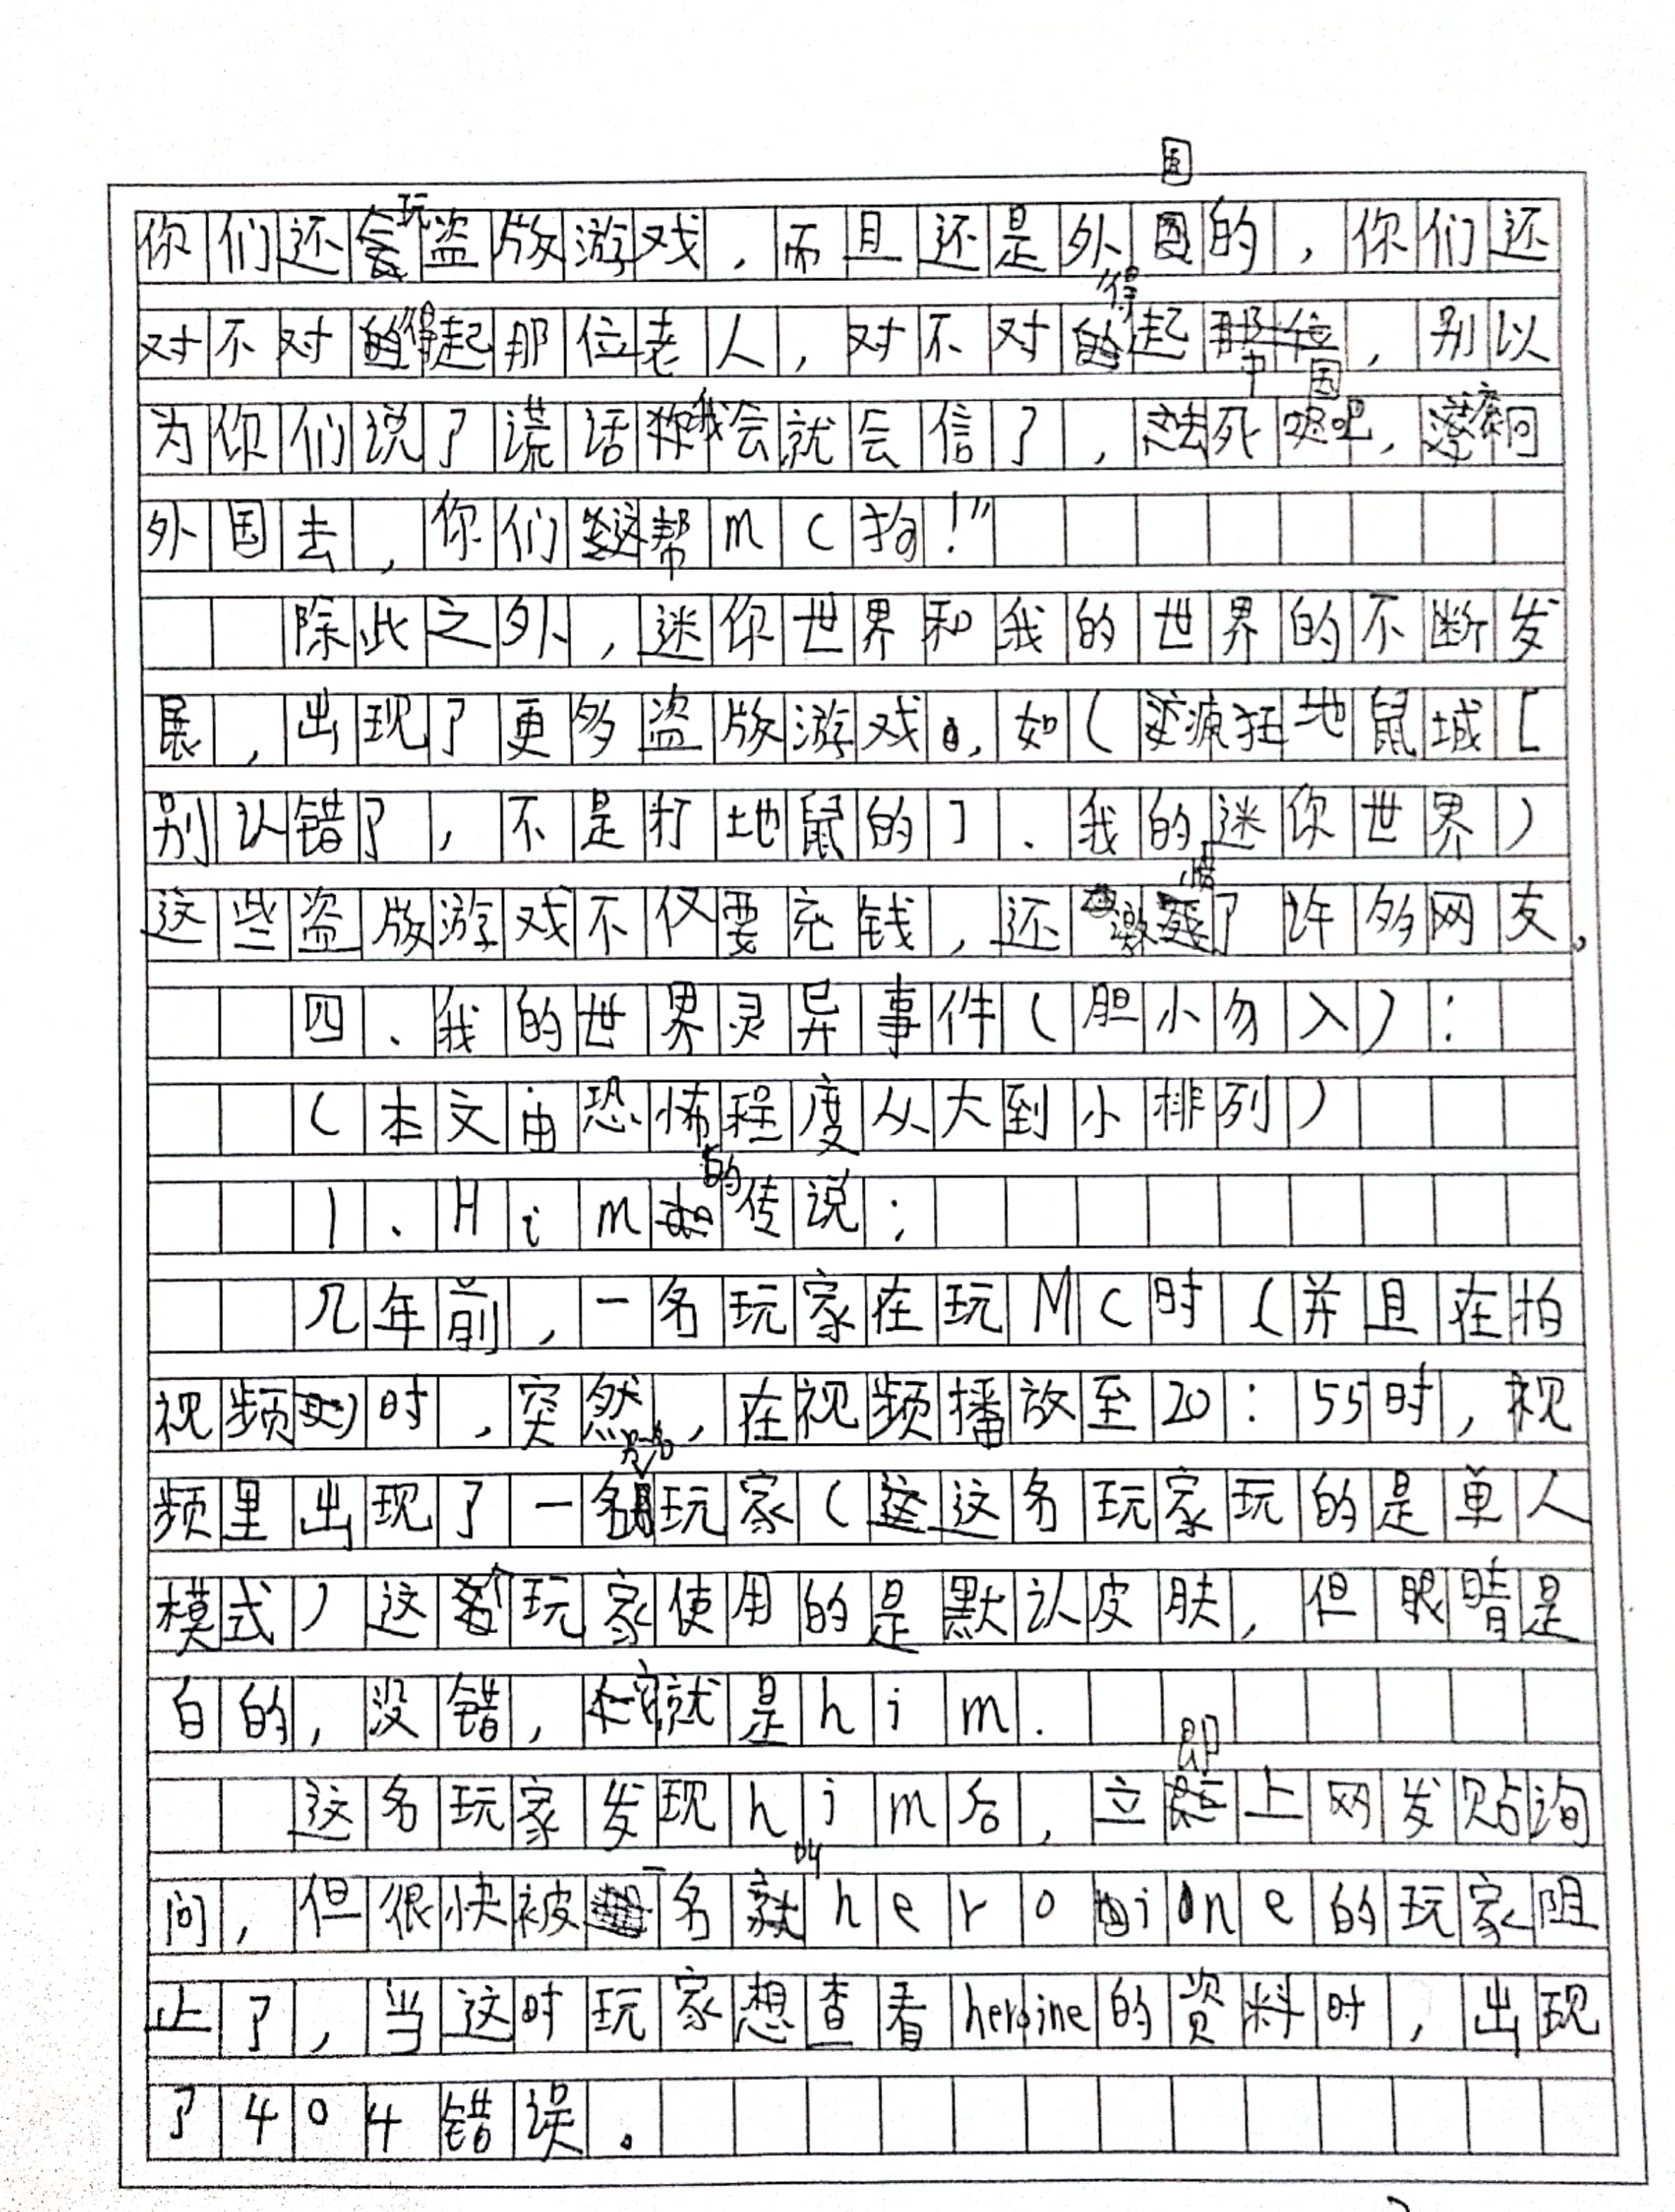 你们还玩盗版游戏，而且还是外国的，你们还
对不对得起那位老人，对不对得起中国，别以
为你们说了谎话我会就会信了，去死吧，滚回
外国去，你们这帮mc狗！”
除此之外，迷你世界和我的世界的不断发
展，出现了更多盗版游戏，如（疯狂地鼠城［
别认错了，不是打地鼠的］、我的迷你世界）
这些盗版游戏不仅要充钱，还激惜了许多网友。
四、我的世界灵异事件（胆小勿入）：
（本文由恐怖程度从大到小排列）
1、Him的传说：
几年前，一名玩家在玩MC时（并且在拍
视频）时，突然，在视频播放至20：55时，视
频里出现了一名玩家（这名玩家玩的是单人
模式）这个玩家使用的是默认皮肤，但眼睛是
白的，没错，它就是him.
这名玩家发现him后，立即上网发贴询
问，但很快被一名叫heroine的玩家阻
止了，当这时玩家想查看heroine的资料时，出现
了404错误。